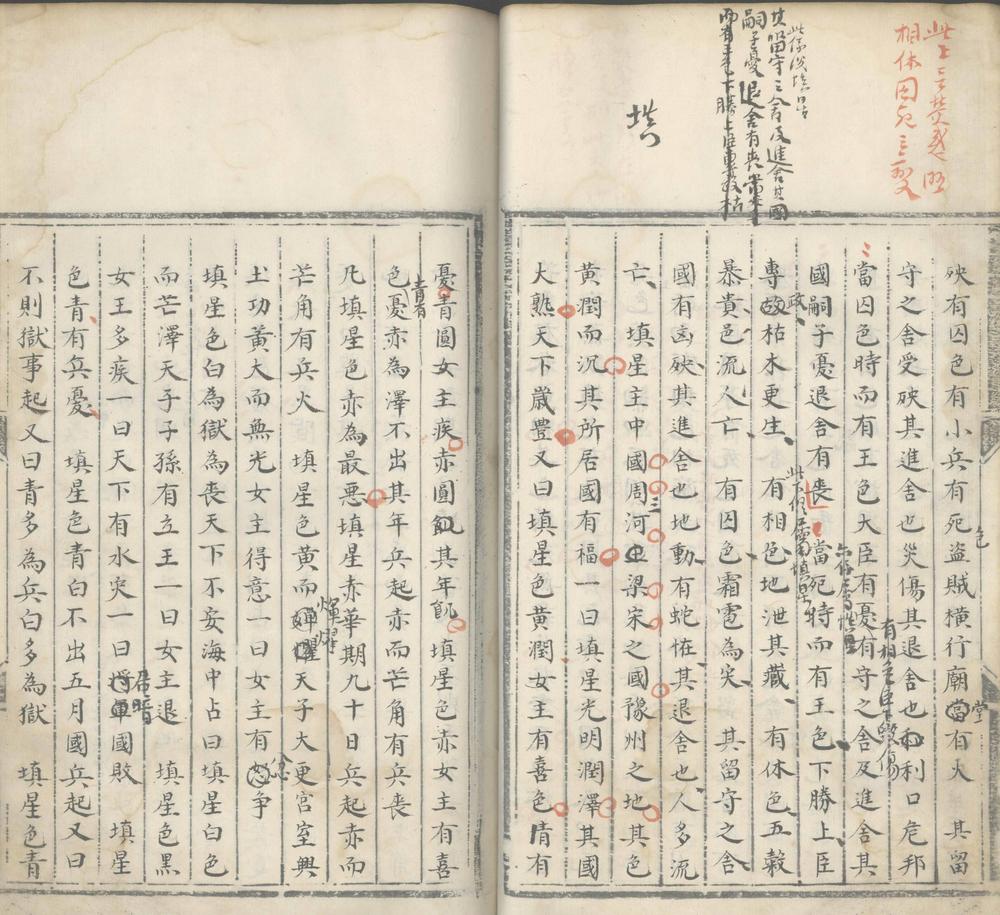 殃有囚色有小兵有死盜賊橫行廟當有火　其留
守之舍受殃其進舍也災傷其退舍也和利口危邦
當囚色時而有王色大臣有憂有守之舍及進舍其
國嗣子憂退舍有喪　當死時而有王色下勝上臣
專故枯木更生　有相色地泄其藏　有休色五穀
暴貴邑流人亡　有囚色霜雹為災　其留守之舍
國有凶殃其進舍也地動有蛇恠其退舍也人多流
亡　填星主中國周河亞梁宋之國豫州之地其色
黃潤而沉其所居國有福一曰填星光明潤澤其國
大熟天下歲豊又曰填星色黃潤女主有喜色青有
憂青圓女主疾赤圓飢其年飢　填星色赤女主有喜
色憂亦為澤不出其年兵起赤而芒角有兵喪
凡填星色赤為最惡填星赤華期九十日兵起赤而
芒角有兵火　填星色黃而暉曜天子大更宮室興
土功黃大而無光女主得意一曰女主有忿爭
填星色白為獄為喪天下不安海中占曰填星白色
而芒澤天子子孫有立王一曰女主退　填星色黑
女王多疾一曰天下有水災一曰將軍國敗　填星
色青有兵憂　填星色青白不出五月國兵起又曰
不則獄事起又曰青多為兵白多為獄　填星色青
填
其留守之舍及進舍其國
嗣子憂退舍有喪當死
此係後填星占
色
堂
政
有相色臣下毀傷
三
青有
煇燿
忿
居暗